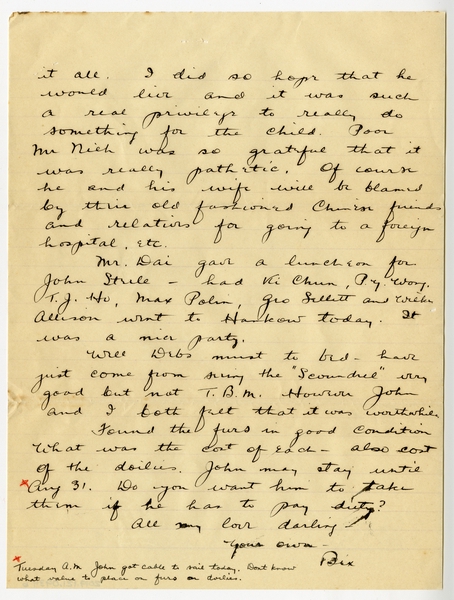 it all. I did so hope that he
would live and it was such
a real privilege to really do
something for the child. Poor
Mr Nieh was so grateful that it
was really pathetic. Of course
he and his wife will be blamed
by their old fashioned Chinese friends
and relatives for going to a foreign
hospital, etc.
Mr. Dai gave a luncheon for
John Steele - had Ki Chun, P.y. Wong,
T.J. Ho, Max Polin, Geo Sellett and
Allison went to Hankow today. It
was a nice party.
Well Debs must to bed - have
just come from seeing the "Scoundrel" very
good but not T.B.M. However John
and I both felt that it was worthwhile
Found the furs in good condition
What was the cost of each - also cost
of the doilies. John may stay until
*Aug 31. Do you want him to take
them if he has to pay duty?
All my love darling -
Your own -
Bix
*Tuesday A.M. John got cable to sail today. Dont know
what value to place on furs or doilies.